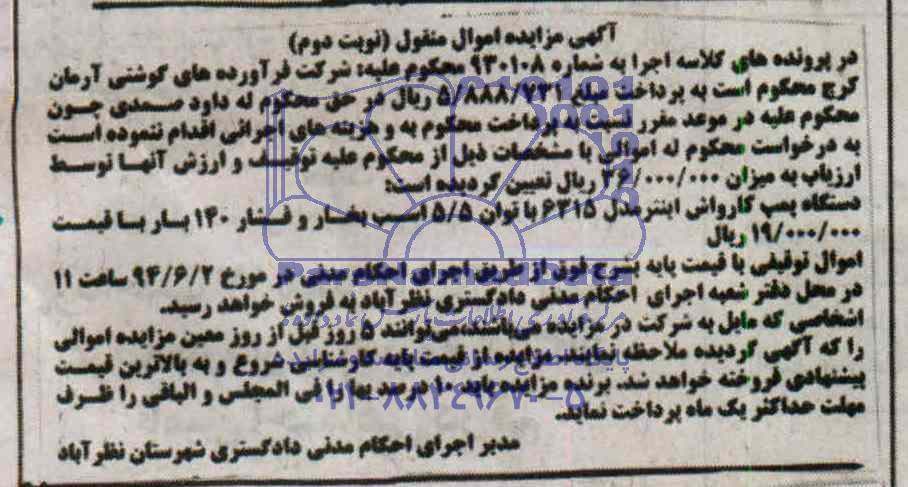 آگهی مزایده اموال منقول (نوبت دوم)
در پرونده های کلاسه اجرا به شماره ۹۳۰۱۰۸ محکوم علیه: شرکت فرآورده های گوشتی آرمان
کرج محکوم است به پرداخت مبلغ ۵/۸۸۸/۷۳۱ ریال در حق محکوم له داود صمدی چون
محکوم علیه در موعد مقرر نسبت به پرداخت محکوم به و هزینه های اجرائی اقدام ننموده است
به درخواست محکوم له اموالی با مشخصات ذیل از محکوم علیه توقیف و ارزش آنها توسط
ارزیاب به میزان ۳۶/۰۰۰/۰۰۰ ریال تعیین گردیده است:
دستگاه پمپ کارواش اینترمدل ۶۳۱۵ با توان ۵/۵ اسب بخار و فشار ۱۴۰ بار با قیمت
۱۹/۰۰۰/۰۰۰ ریال
اموال توقیفی با قیمت پایه بشرح فوق از طریق اجرای احکام مدنی در مورخ ۹۴/۶/۲ ساعت ۱۱
در محل دفتر شعبه اجرای احکام مدنی دادگستری نظرآباد به فروش خواهد رسید.
اشخاصی که مایل به شرکت در مزایده می‌باشند،می‌توانند ۵ روز قبل از روز معین مزایده اموالی
را که آگهی گردیده ملاحظه نمایند. مزایده از قیمت پایه کارشناسی شروع و به بالاترین قیمت
پیشنهادی فروخته خواهد شد. برنده مزایده باید ۱۰ درصد بها را فی المجلس و الباقی را ظرف
مهلت حداکثر یک ماه پرداخت نماید.
۰۲۱-۸۸۳۴۹۶۷۰-۵
مدیر اجرای احکام مدنی دادگستری شهرستان نظرآباد